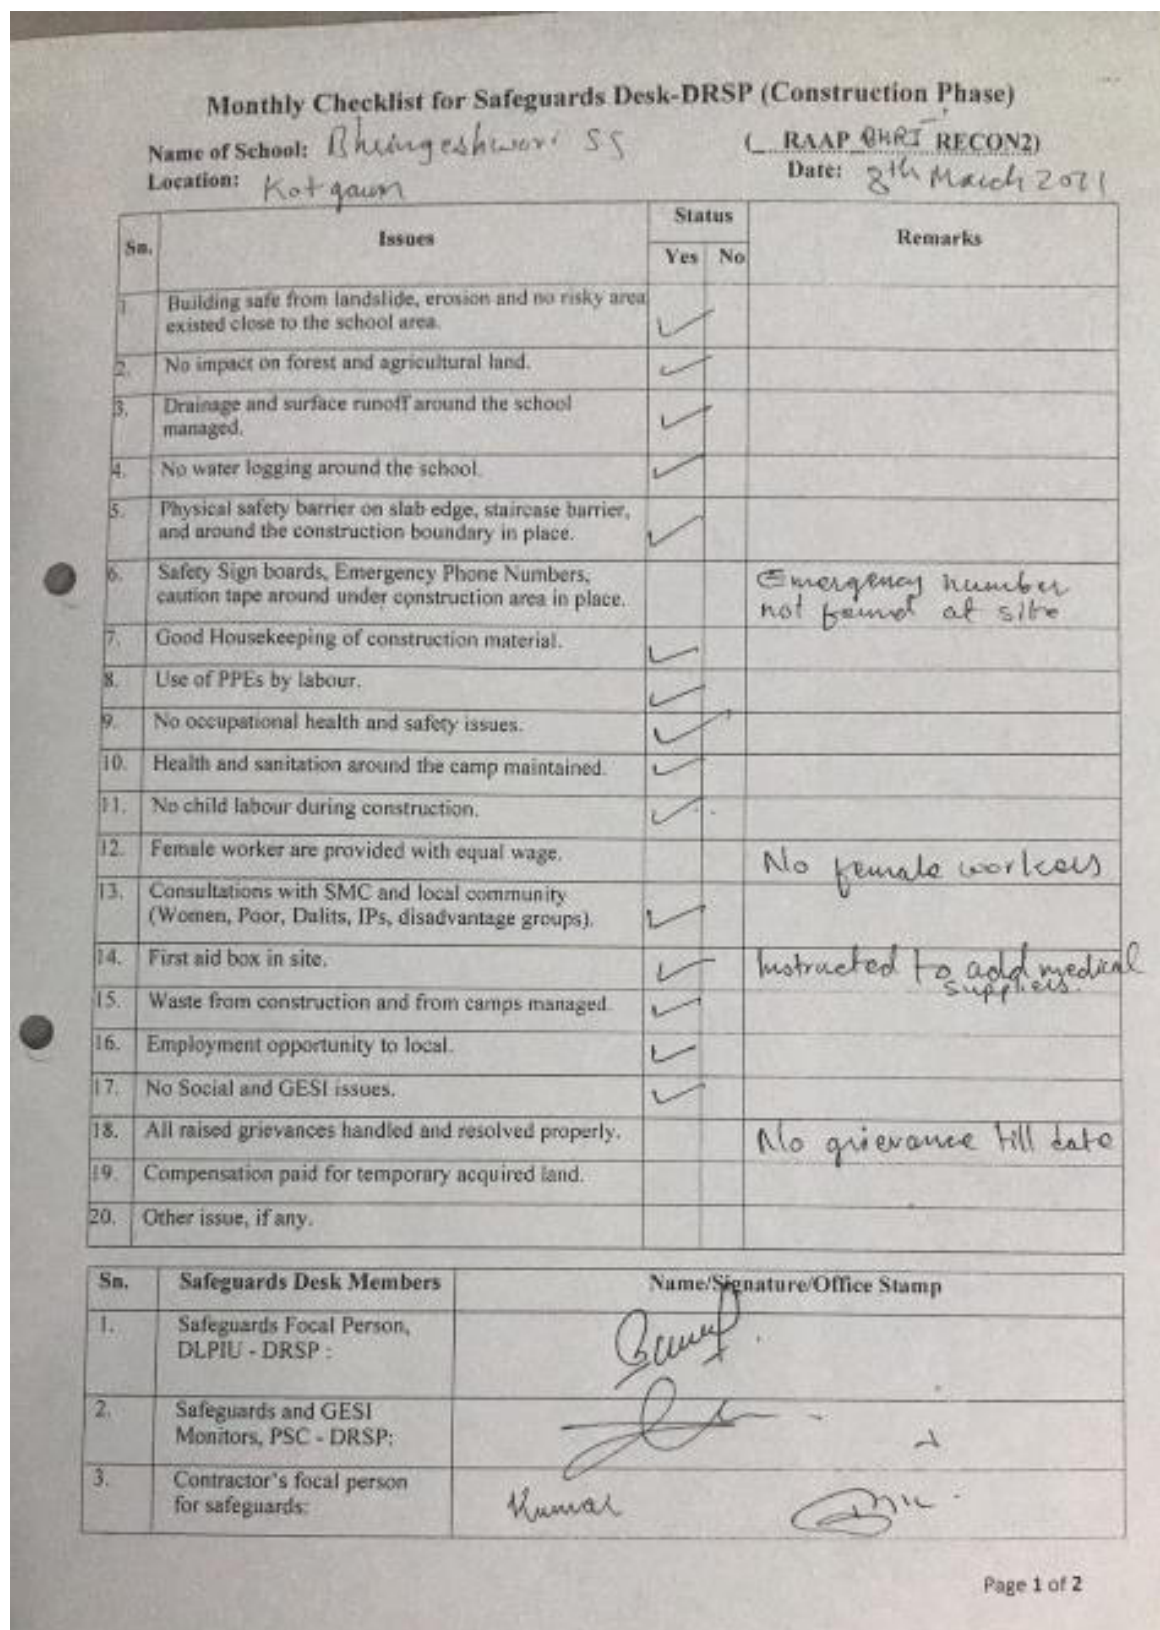 Monthly Checklist for Safeguards Desk-DRSP (Construction Phase)
Name of School: Bhringeshwori SS (_ RAAP BHRI RECON2)
Location: Kotgaun Date: 8th March 2021
Sn. Issues Status Remarks
Yes No
1 Building safe from landslide, erosion and no risky area
existed close to the school area. ✓
2. No impact on forest and agricultural land. ✓
3. Drainage and surface runoff around the school
managed. ✓
4. No water logging around the school. ✓
5. Physical safety barrier on slab edge, staircase barrier,
and around the construction boundary in place. ✓
6. Safety Sign boards, Emergency Phone Numbers, Emergency number
caution tape around under construction area in place. not found at site
7. Good Housekeeping of construction material. ✓
8. Use of PPEs by labour. ✓
9. No occupational health and safety issues. ✓
10. Health and sanitation around the camp maintained. ✓
11. No child labour during construction. ✓
12. Female worker are provided with equal wage. No female workers
13. Consultations with SMC and local community
(Women, Poor, Dalits, IPs, disadvantage groups). ✓
14. First aid box in site. ✓ Instructed to add medical
suppliers.
15. Waste from construction and from camps managed. ✓
16. Employment opportunity to local. ✓
17. No Social and GESI issues. ✓
18. All raised grievances handled and resolved properly. No grievance till date
19. Compensation paid for temporary acquired land.
20. Other issue, if any.
Sn. Safeguards Desk Members Name/Signature/Office Stamp
1. Safeguards Focal Person,
DLPIU - DRSP :
2. Safeguards and GESI
Monitors, PSC - DRSP:
3. Contractor's focal person
for safeguards: Kumar
Page 1 of 2